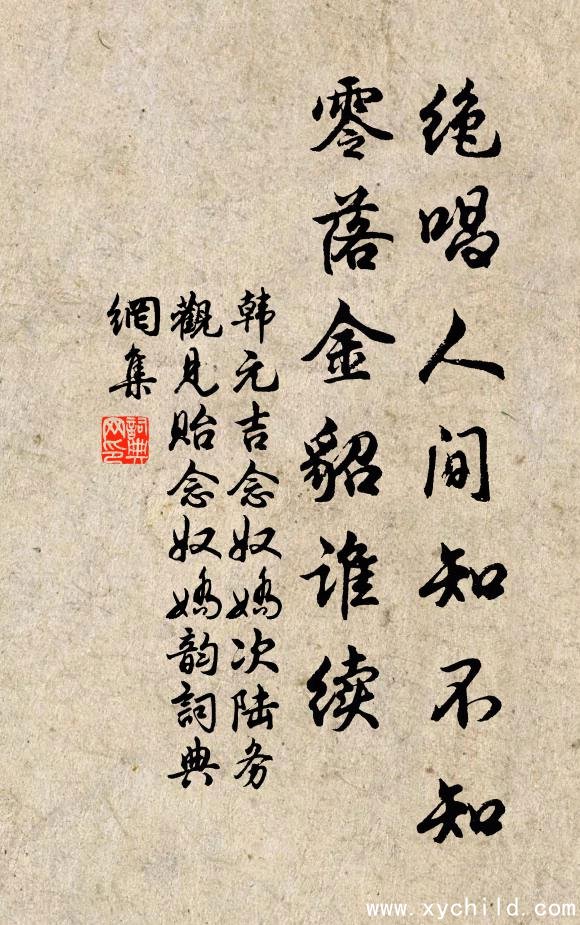 绝唱人间知不知
零落金貂谁续
韩元吉念奴娇次陆务
觀見贻念奴娇韵詞典
網集
詞典
网印
www.xychild.com